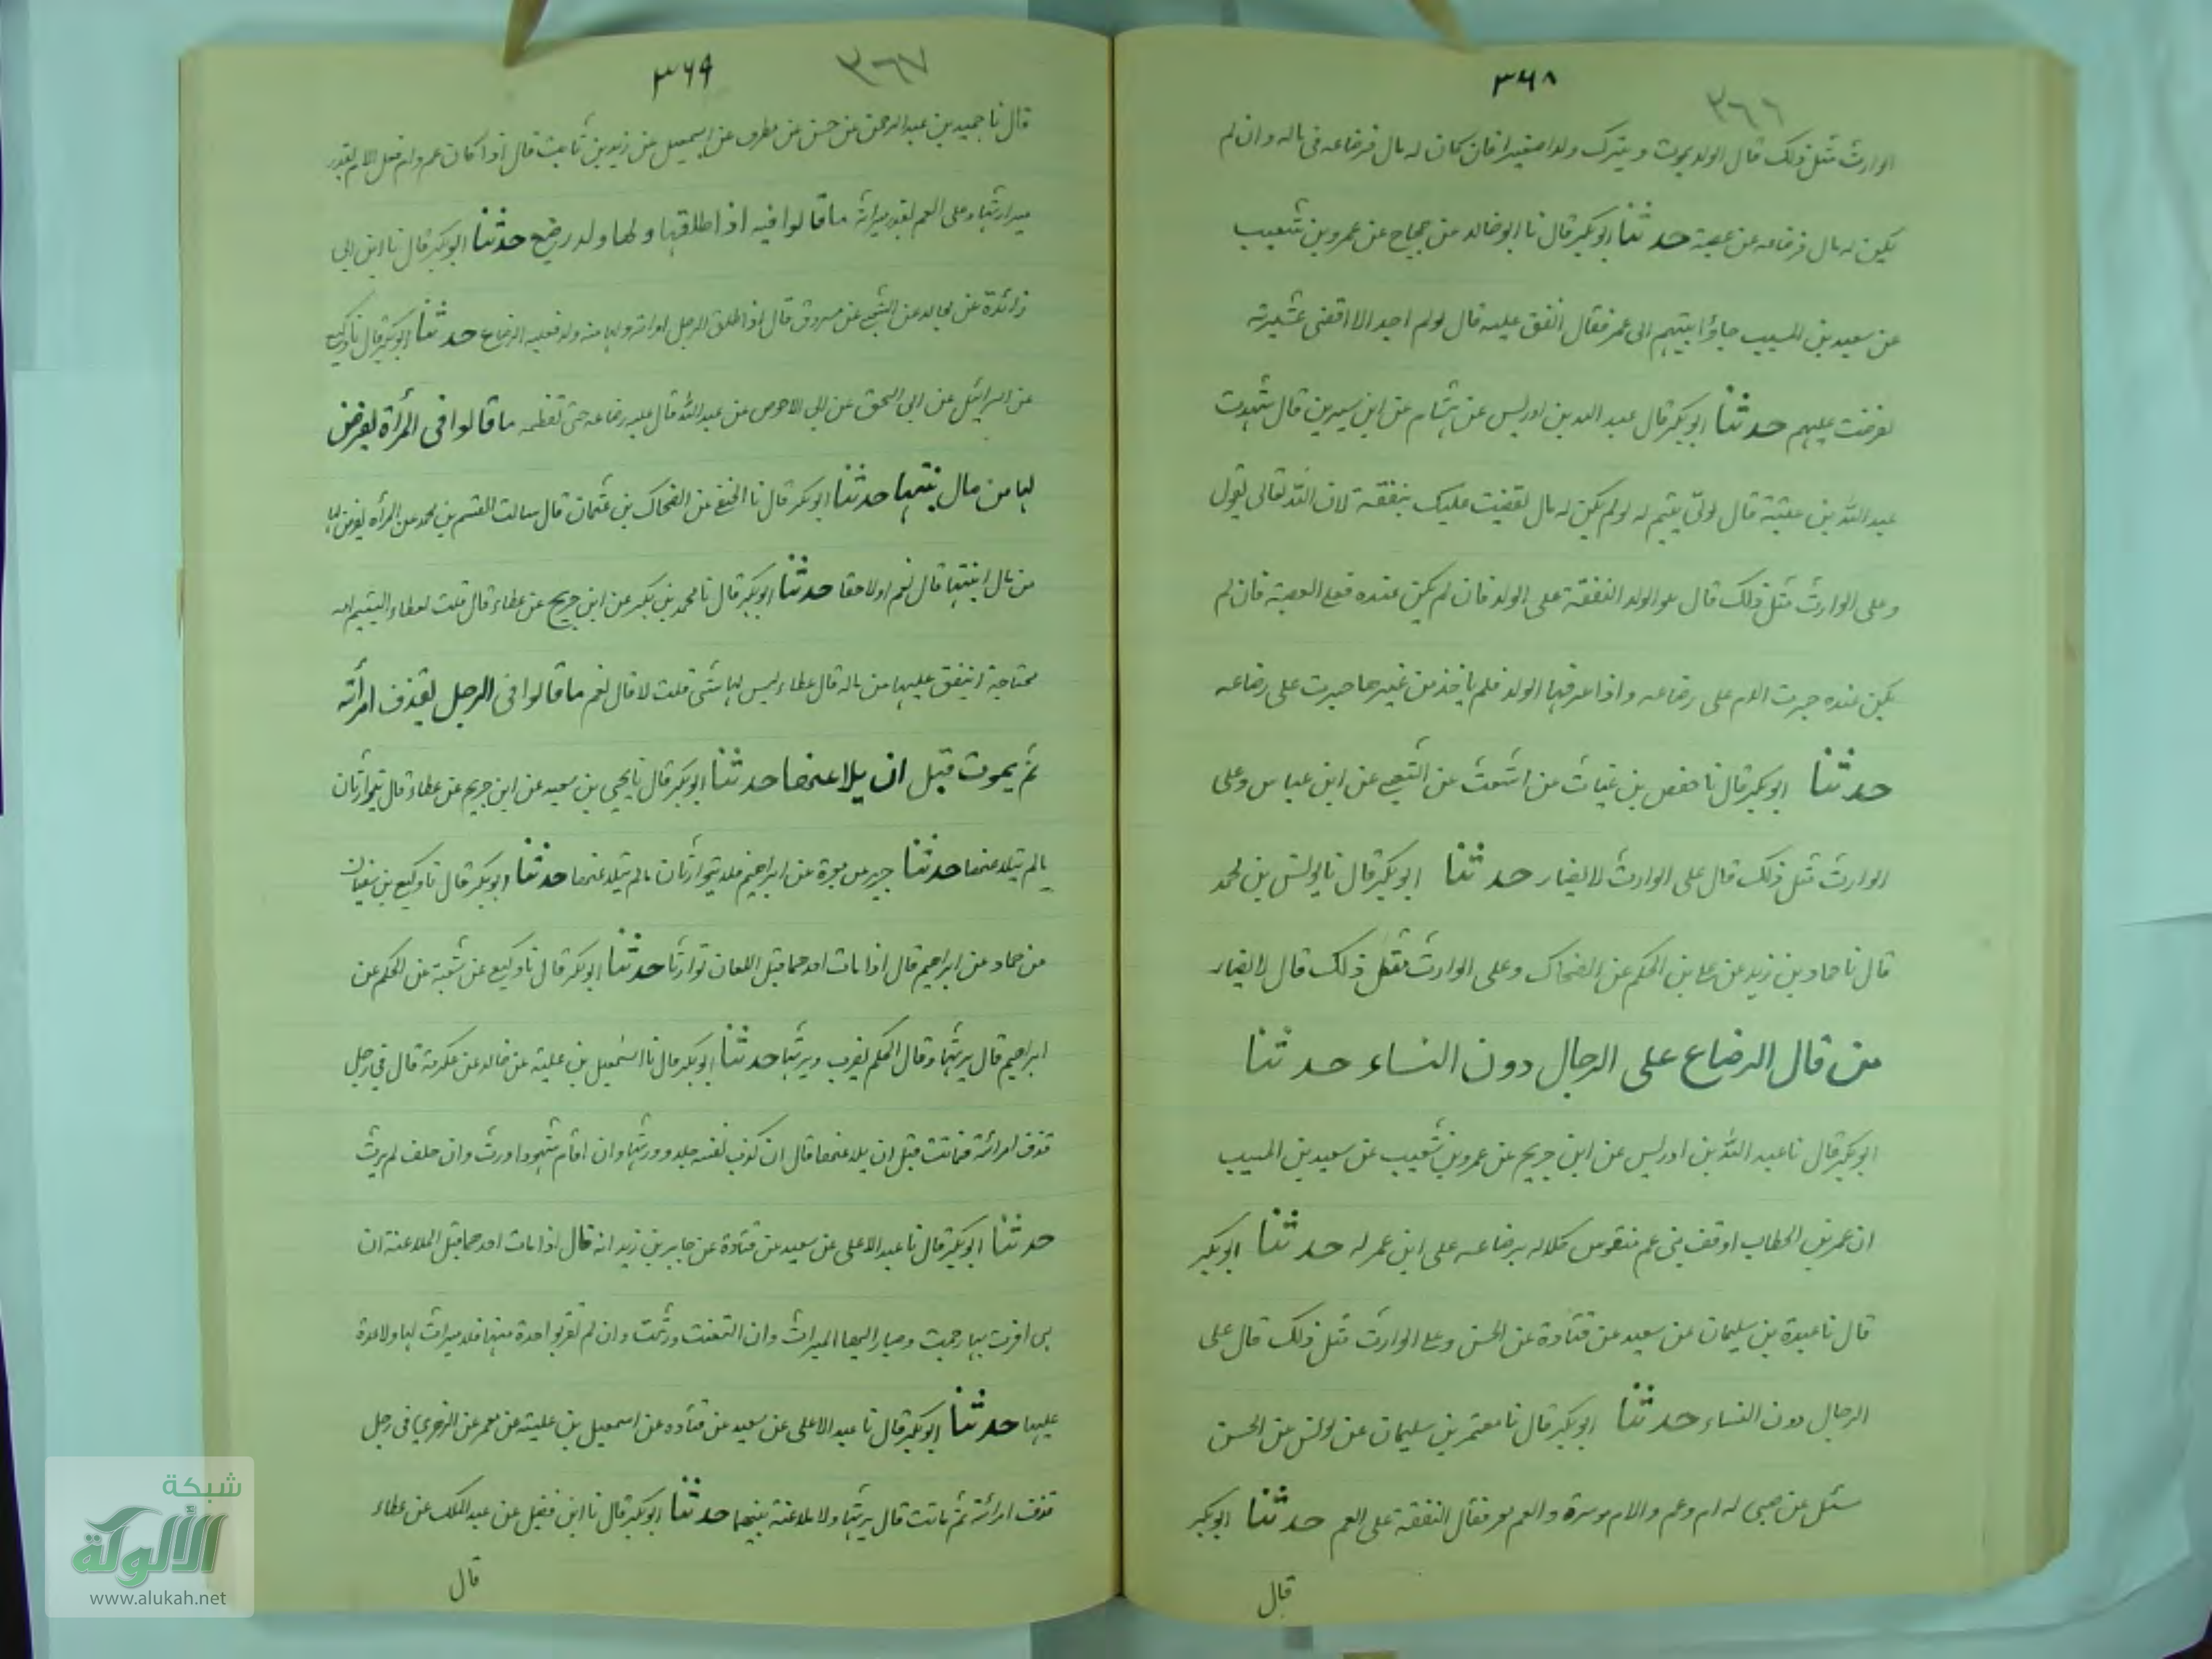 ٣٦٨
٣٦٦
الوارث مثل ذلك قال الولد يموت ويترك ولدا صغيرا فان كان له مال فرضاعه فى ماله وان لم
يكن له مال فرضاعه عن عصبة حدثنا ابوبكر قال نا ابوخالد عن حجاج عن عمرو بن شعيب
عن سعيد بن المسيب جاؤا بيتيم الى عمر فقال انفق عليه قال لولم اجد الا اقصى عشيرته
لفرضت عليهم حدثنا ابوبكر قال عبد الله بن ادريس عن هشام عن ابن سيرين قال شهدت
عبد الله بن عتبة قال لولى يتيم له لولم يكن له مال لقضيت عليك بنفقة لان الله تعالى يقول
وعلى الوارث مثل ذلك قال هو الولد النفقة على الولد فان لم يكن عنده فعلى العصبة فان لم
يكن عنده جبرت الام على رضاعه واذا عرفها الولد فلم ياخذ من غيرها جبرت على رضاعه
حدثنا ابوبكر قال نا حفص بن غياث عن اشعث عن الشعبى عن ابن عباس وعلى
الوارث مثل ذلك قال على الوارث لا يضار حدثنا ابوبكر قال نا يونس بن محمد
قال نا حماد بن زيد عن على بن الحكم عن الضحاك وعلى الوارث مثل ذلك قال لا يضار
من قال الرضاع على الرجال دون النساء حدثنا
ابوبكر قال نا عبد الله بن ادريس عن ابن جريج عن عمرو بن شعيب عن سعيد بن المسيب
ان عمر بن الخطاب اوقف بنى عم منفوس كلاله برضاعه على ابن عمر له حدثنا ابوبكر
قال نا عبدة بن سليمان عن سعيد عن قتادة عن الحسن وعلى الوارث مثل ذلك قال على
الرجال دون النساء حدثنا ابوبكر قال نا معتمر بن سليمان عن يونس عن الحسن
سئل عن صبى له ام وعم والام موسرة والعم معسر فقال النفقة على العم حدثنا ابوبكر
قال
٣٦٩
٣٦٧
قال نا حميد بن عبد الرحمن عن حسن عن مطرف عن اسمعيل عن زيد بن ثابت قال اذا كان عم وام فعلى الام بقدر
ميراثها وعلى العم بقدر ميراثه ما قالوا فيه اذا طلقها ولها ولد رضيع حدثنا ابوبكر قال نا ابن ابى
زائدة عن مجالد عن الشعبى عن مسروق قال اذا طلق الرجل امراته ولها منه ولد فعليه الرضاع حدثنا ابوبكر قال نا وكيع
عن اسرائيل عن ابى اسحق عن ابى الاحوص عن عبد الله قال عليه رضاعه حتى تفطمه ما قالوا فى المرأة يفرض
لها من مال بنتها حدثنا ابوبكر قال نا الحنفى عن الضحاك بن عثمان قال سالت القسم بن محمد عن المرأه يفرض لها
من مال ابنتها قال نعم اولا حقا حدثنا ابوبكر قال نا محمد بن بكير عن ابن جريج عن عطاء قال قلت لعطاء اليتيم امه
محتاجة اينفق عليها من ماله قال عطاء ليس لها شئ قلت لا قال نعم ما قالوا فى الرجل يقذف امرأته
ثم يموت قبل ان يلاعنها حدثنا ابوبكر قال نا يحيى بن سعيد عن ابن جريج عن عطاء قال يتوارثان
مالم يتلاعنها حدثنا جرير عن مغيرة عن ابراهيم قال يتوارثان مالم يتلاعنها حدثنا ابوبكر قال نا وكيع بن سفيان
عن حماد عن ابراهيم قال اذا مات احدهما قبل اللعان توارثا حدثنا ابوبكر قال نا وكيع عن شعبة عن الحكم عن
ابراهيم قال يرثها وقال الحكم يضرب ويرثها حدثنا ابوبكر قال نا اسمعيل بن علية عن خالد عن عكرمة قال فى رجل
قذف امرأته فماتت قبل ان يلاعنها قال ان كذب نفسه جلد وورثها وان اقام شهودا ورث وان حلف لم يرث
حدثنا ابوبكر قال نا عبد الاعلى عن سعيد عن قتادة عن جابر بن زيد انه قال اذا مات احدهما قبل الملاعنة ان
هى اقرت بها رجمت وصار اليها الميراث وان التعنت ورثت وان لم تقر بواحدة منها فلا ميراث لها ولا عدة
عليها حدثنا ابوبكر قال نا عبد الاعلى عن سعيد عن قتاده عن اسمعيل بن علية عن معمر عن الزهرى فى رجل
قذف امرأته ثم ماتت قال يرثها ولا ملاعنة بينهما حدثنا ابوبكر قال نا ابن فضيل عن عبد الملك عن عطاء
قال
شبكة
الألوكة
www.alukah.net